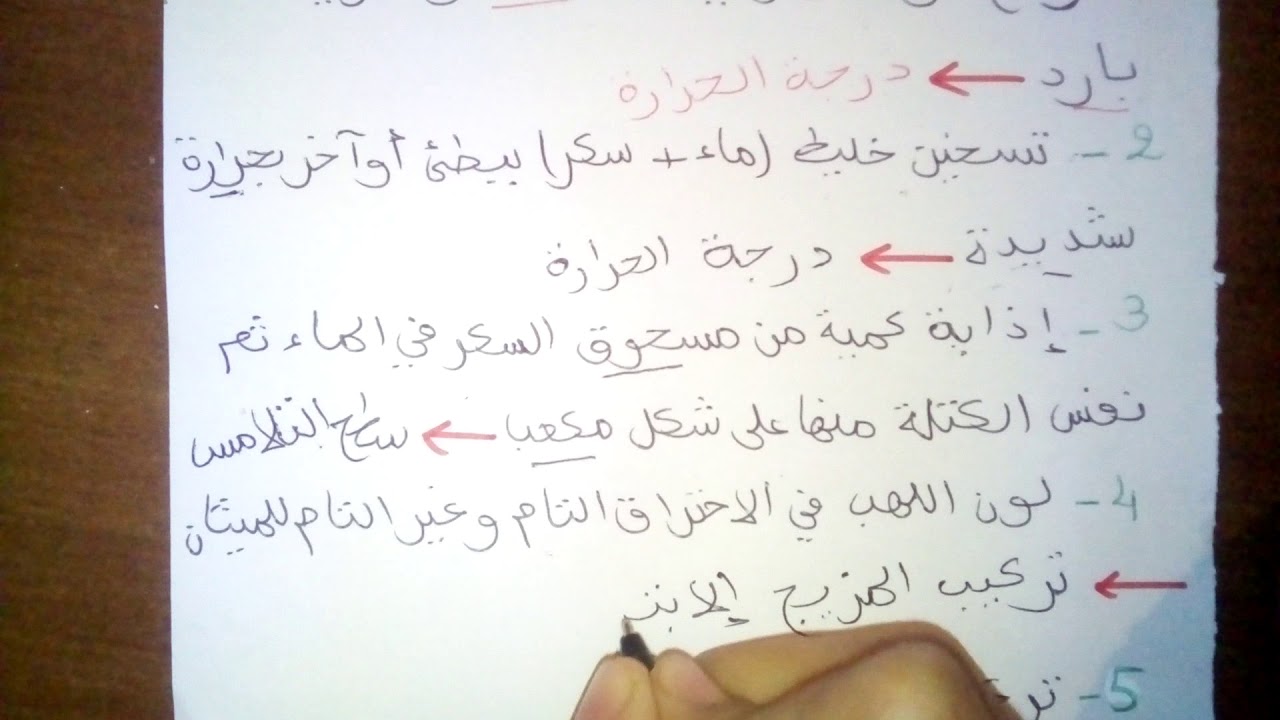 بارد ← درجة الحرارة
2- تسخين خليط (ماء + سكر) ببطئ أو آخر بحرارة
شديدة ← درجة الحرارة
3- إذابة كمية من مسحوق السكر في الماء ثم
نفس الكتلة منها على شكل مكعب ← سطح التلامس
4- لون اللهب في الاحتراق التام وغير التام للميثان
← تركيب المزيج الابتد
5-